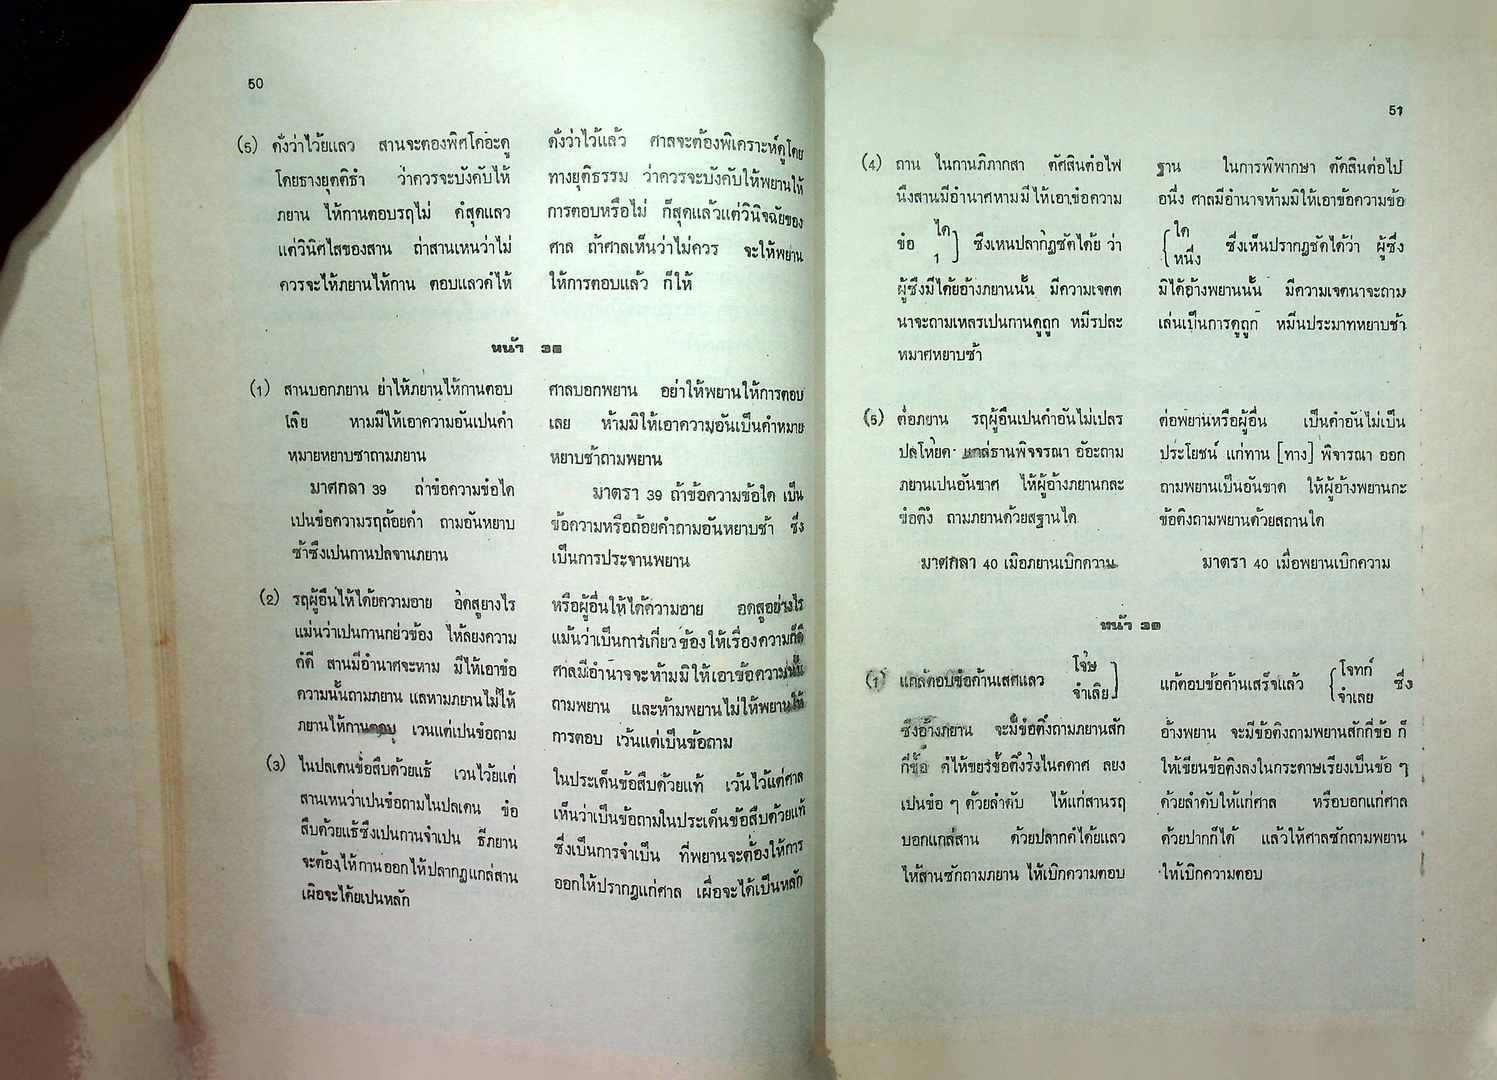 50
(5) ดั่งว่าไว้ยแลว สานจะตองพิศโคอ๊ะดู
โดยธางยุตติธำ ว่าควรจะบังคับไห้
ภยาน ไห้การตอบรฤไม่ ค๋สุดแลว
แต่วินิศไสของสาน ถ่าสานเหนว่าไม่
ควรจะไห้ภยานไห้กาน ตอบแลวค๋ไห้
ดั่งว่าไว้แล้ว ศาลจะต้องพิเคราะห์ดูโดย
ทางยุติธรรม ว่าควรจะบังคับให้พยานให้
การตอบหรือไม่ ก็สุดแล้วแต่วินิจฉัยของ
ศาล ถ้าศาลเห็นว่าไม่ควร จะให้พยาน
ให้การตอบแล้ว ก็ให้
หน้า ๓๘
(1) สานบอกภยาน ย่าไห้ภยานไห้กานตอบ
โลีย หามมีไห้เอาความอันเปนคำ
หมายหยาบซาถามภยาน
มาศกลา 39 ถ่าข้อความข้อได
เปนข้อความรฤถ้อยคำ ถามอันหยาบ
ซ้าซึงเปนกานปลจานภยาน
ศาลบอกพยาน อย่าให้พยานให้การตอบ
เลย ห้ามมิให้เอาความอันเป็นคำหมาย
หยาบช้าถามพยาน
มาตรา 39 ถ้าข้อความข้อใด เป็น
ข้อความหรือถ้อยคำถามอันหยาบช้า ซึ่ง
เป็นการประจานพยาน
(2) รฤผู้อืนไห้ได้ยความอาย อดสูยางไร
แม่นว่าเปนกานกย่วข้อง ไห้ลยงความ
ก๋ดี สานมีอำนาศจะหาม มีไห้เอาข้อ
ความนั้นถามภยาน แลหามภยานไม่ไห้
ภยานไห้กานตอบ เวนแต่เปนข้อถาม
หรือผู้อื่นให้ได้ความอาย อดสูอย่างไร
แม้นว่าเป็นการเกี่ยวข้องให้เรื่องความก็ดี
ศาลมีอำนาจจะห้ามมิให้เอาข้อความนั้น
ถามพยาน และห้ามพยานไม่ให้พยานให้
การตอบ เว้นแต่เป็นข้อถาม
(3) ไนปลเดนข้อสืบด้วยแธ้ เวนไว้ยแต่
สานเหนว่าเปนข้อถามไนปลเดน ข้อ
สืบด้วยแธ้ซึงเปนกานจำเปน ธีภยาน
จะต้องไห้กานออกไห้ปลากฎแกล่สาน
เผิอจะได้ยเปนหลัก
ในประเด็นข้อสืบด้วยแท้ เว้นไว้แต่ศาล
เห็นว่าเป็นข้อถามในประเด็นข้อสืบด้วยแท้
ซึ่งเป็นการจำเป็น ที่พยานจะต้องให้การ
ออกให้ปรากฎแก่ศาล เผื่อจะได้เป็นหลัก
51
(4) ถาน ไนกานภิภากสา ตัศสินต่อไฟ
นึงสานมีอำนาศหามมีไห้เอาข้อความ
ข้อ ได 1 ซึงเหนปลากฎชัดได้ย ว่า
ผู้ซึงมีได้ยอ้างภยานนั้น มีความเจตต
นาจะถามเหลรเปนกานดูถูก หมีรปละ
หมาศหยาบซ้า
ฐาน ในการพิพากษา ตัดสินต่อไป
อนึ่ง ศาลมีอำนาจห้ามมิให้เอาข้อความข้อ
ใด หนึ่ง ซึ่งเห็นปรากฎชัดได้ว่า ผู้ซึ่ง
มิได้อ้างพยานนั้น มีความเจตนาจะถาม
เล่นเป็นการดูถูก หมีนประมาทหยาบช้า
(5) ต่อภยาน รฤผู้อืนเปนคำอันไม่เปลร
ปลโห้ยด แกล่ธานพิจจรณา อ้อะถาม
ภยานเปนอันขาศ ไห้ผู้อ้างภยานกละ
ข้อติง ถามภยานด้วยสฐานได
ต่อพยานหรือผู้อื่น เป็นคำอันไม่เป็น
ประโยชน์ แก่ทาน [ทาง] พิจารณา ออก
ถามพยานเป็นอันขาด ให้ผู้อ้างพยานกะ
ข้อติงถามพยานด้วยสถานใด
มาศกลา 40 เมือภยานเบิกความ
มาตรา 40 เมื่อพยานเบิกความ
หน้า ๓๙
(1) แกล้ตอบข้อค้านเสศแลว โจ้ษ จำเลีย
ซึงอ้างภยาน จะมีข้อติงถามภยานสัก
กี่ข้อ ค๋ไห้ขยรข้อติงรงไนคดาศ ลยง
เปนข้อ ๆ ด้วยลำดับ ไห้แก่สานรฤ
บอกแกล่สาน ด้วยปลากค๋ได้ยแลว
ไห้สานซักถามภยาน ไห้เบิกความตอบ
แก้ตอบข้อค้านเสร็จแล้ว โจทก์ จำเลย ซึ่ง
อ้างพยาน จะมีข้อติงถามพยานสักกี่ข้อ ก็
ให้เขียนข้อติงลงในกระดาษเรียงเป็นข้อ ๆ
ด้วยลำดับให้แก่ศาล หรือบอกแก่ศาล
ด้วยปากก็ได้ แล้วให้ศาลซักถามพยาน
ให้เบิกความตอบ